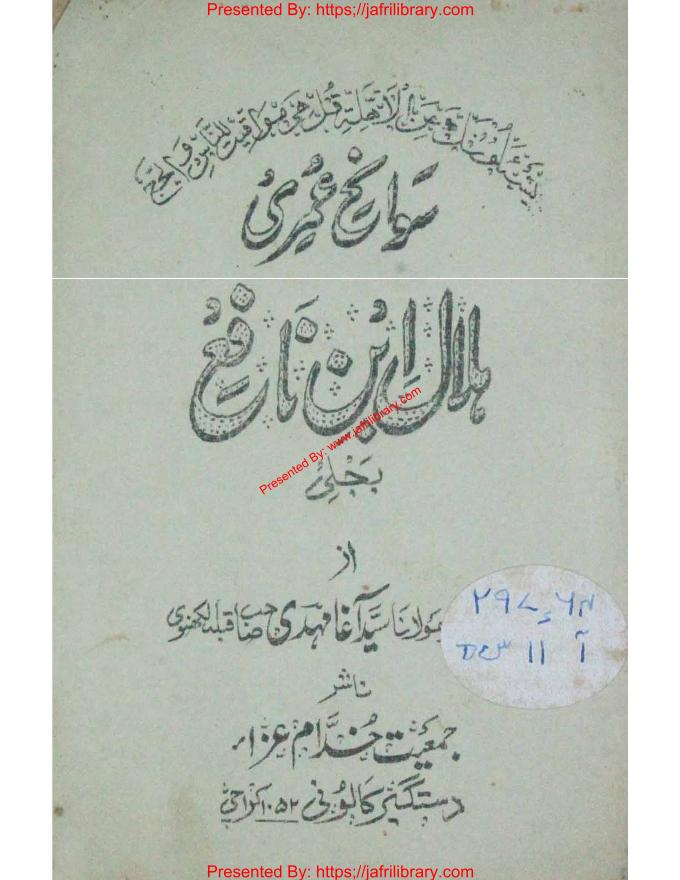 Presented By: https://jafrilibrary.com
يَسْئَلُونَكَ عَنِ الْاَهِلَّةِ قُلْ هِىَ مَوَاقِيتُ لِلنَّاسِ وَالْحَجِّ
سَوانِحْ عُمرِیْ
ہلال اِبْن نَافِعْ
Presented By: www.jafrilibrary.com
بَجَلِیْ
از
مولانا سیّد آغا مہدی صاحب قبلہ لکھنوی
۲۹۷ء۶۴
آ ۱۱
ناشر
جمعیت خُدَّام عزاء
دستگیر کالونی ۱۰۵۲ کراچی
Presented By: https://jafrilibrary.com